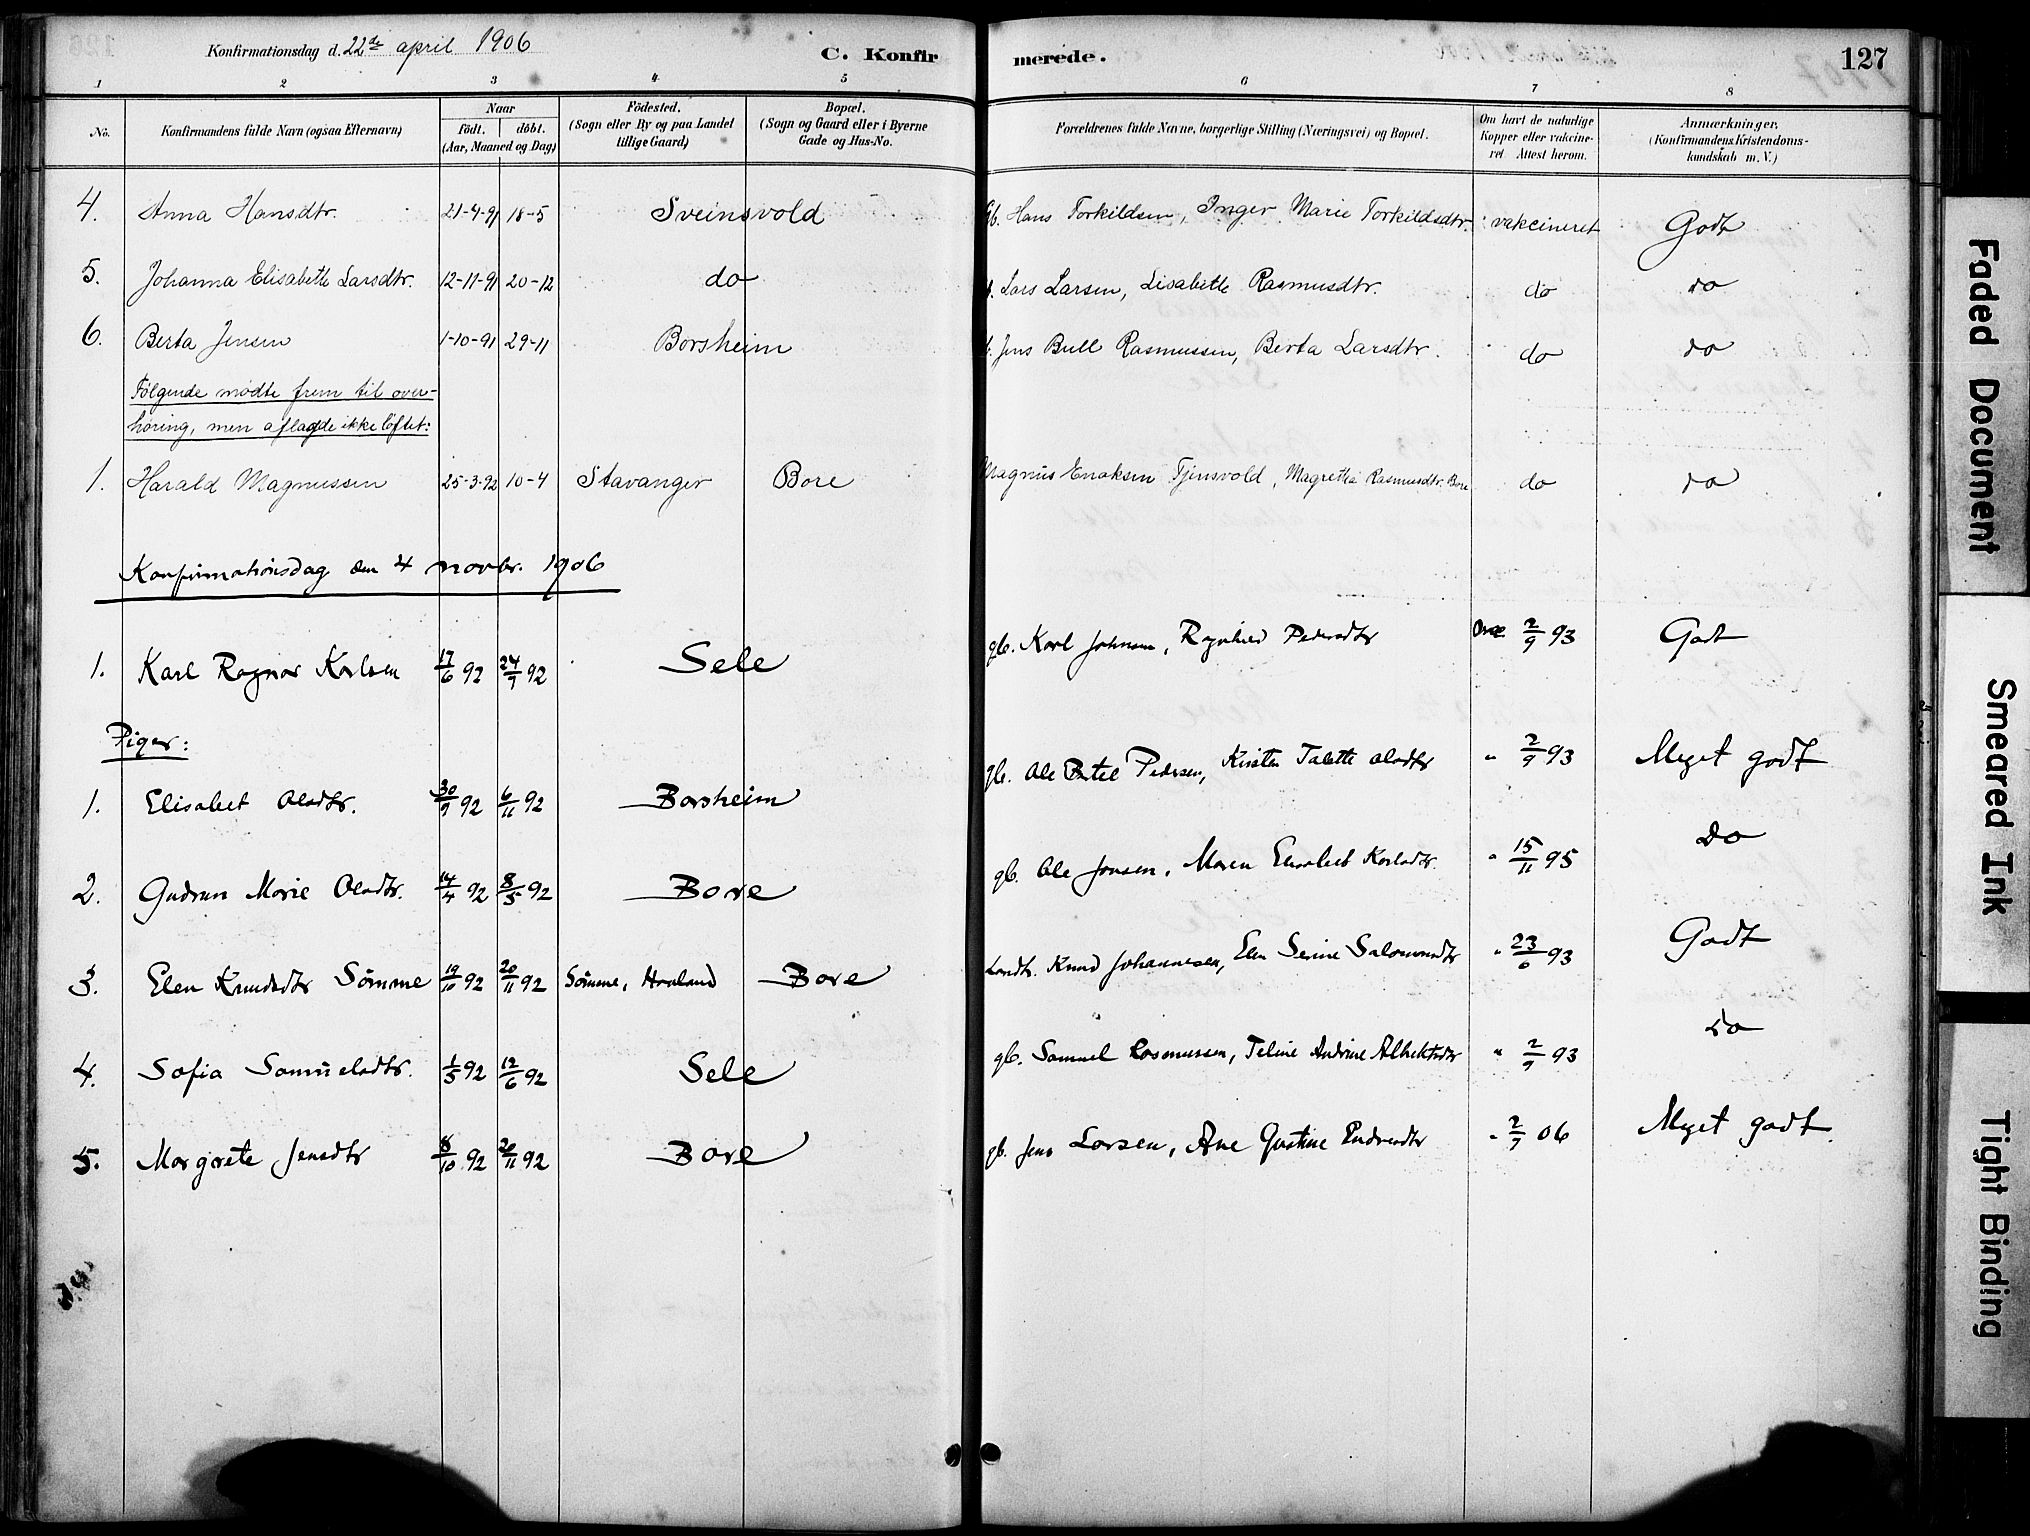 Konfirmationsdag d. 22de april 1906 C. Konfir merede. 127
1 2 3 4 5 6 7 8
No. Konfirmandens fulde Navn (ogsaa Efternavn) Naar født. døbt. (Aar, Maaned og Dag) Fødested. (Sogn eller By og paa Landet tillige Gaard) Bopæl. (Sogn og Gaard eller i Byerne Gade og Hus-No. Forældrenes fulde Navne, borgerlige Stilling (Næringsvei) og Bopæl. Om havt de naturlige Kopper eller vakcineret. Attest herom. Anmærkninger. (Konfirmandens Kristendomskundskab m. V.)
4. Anna Hansdtr. 21-4-91 18-5 Sveinsvold Gb. Hans Torkildsen, Inger Marie Torkildsdtr. vakcineret Godt
5. Johanna Elisabette Larsdtr. 12-11-91 20-12 do Lars Larsen, Lisabette Rasmusdtr. do do
6. Berta Jensen 1-10-91 29-11 Borsheim Jens Bull Rasmussen, Berta Larsdtr. do do
Følgende mødte frem til over-
høring, men aflagde ikke løftet:
1. Harald Magnussen 25-3-92 10-4 Stavanger Bore Magnus Enoksen Tjensvold, Magretha Rasmusdtr. Bore do do
Konfirmationsdag den 4 novbr. 1906
1. Karl Ragnar Karlsen 17/6 92 24/7 92 Sele gb. Karl Johnsen, Ragnhild Pedersdtr 2/9 93 Godt
Piger:
1. Elisabet Olsdtr. 30/9 92 6/11 92 Borsheim gb. Ole Bertel Pedersen, Kirsten Talette Olsdtr " 2/9 93 Meget godt
2. Gudrun Marie Olsdtr. 14/4 92 8/5 92 Bore gb. Ole Jonsen, Maren Elisabet Karlsdtr. " 15/11 95 Do
3. Elen Knudsdtr Sømme 19/10 92 20/11 92 Sømme, Haaland Bore Landh. Knud Johannesen, Elen Serine Salomonsdtr " 23/6 93 Godt
4. Sofia Samuelsdtr. 1/5 92 12/6 92 Sele gb. Samuel Rasmussen, Teline Andrine Albrektsdtr " 2/9 93 do
5. Margrete Jensdtr 8/10 92 20/11 92 Bore gb. Jens Larsen, Ane Gustine Endresdtr " 2/7 06 Meget godt.
Faded Document
Smeared Ink
Tight Binding